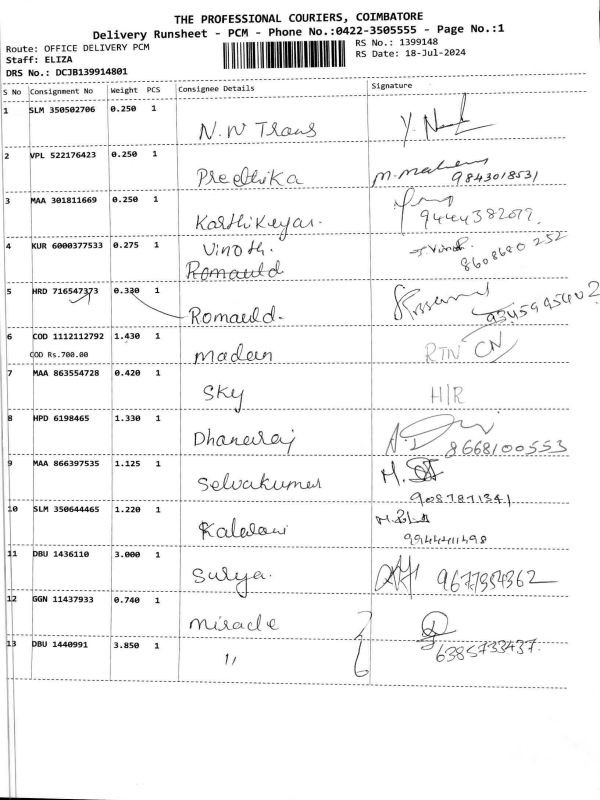 THE PROFESSIONAL COURIERS, COIMBATORE
Delivery Runsheet - PCM - Phone No.:0422-3505555 - Page No.:1
Route: OFFICE DELIVERY PCM
RS No.: 1399148
Staff: ELIZA
RS Date: 18-Jul-2024
DRS No.: DCJB139914801
S No Consignment No Weight PCS Consignee Details Signature
1 SLM 350502706 0.250 1
N.W Trans
2 VPL 522176423 0.250 1
Preethika
9843018531
3 MAA 301811669 0.250 1
Karthikeyan.
4 KUR 6000377533 0.275 1
Vinoth.
8608680 252
Romauld
5 HRD 716547373 0.330 1
Romauld.
6 COD 1112112792 1.430 1
COD Rs.700.00
madan
RTN CN
7 MAA 863554728 0.420 1
Sky
H/R
8 HPD 6198465 1.330 1
Dhanaraj
8668100553
9 MAA 866397535 1.125 1
Selvakumar
9087871341
10 SLM 350644465 1.220 1
9944411498
11 DBU 1436110 3.000 1
Surya.
9677354362
12 GGN 11437933 0.740 1
Miracle
13 DBU 1440991 3.850 1
6385733437.
11